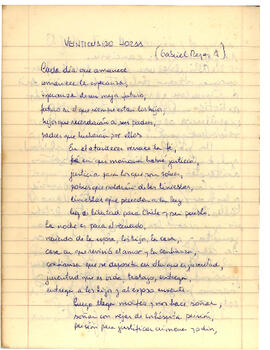 VEINTICUATRO HORAS
(Gabriel Reyes A.)
Cada día que amanece
amanece la esperanza,
esperanza de un mejor futuro,
futuro si el que siempre estan los hijos,
hijos que recordarán a sus padres,
padres que lucharon por ellos
En el atardecer renace la fe,
fé en que mañana habrá justicia,
justicia para los que no saben,
saber que saldrán de las tinieblas
tinieblas que preceden a la luz
luz de libertad para Chile y su pueblo.
La noche es para el recuerdo,
recuerdo de la esposa, los hijos, la casa,
casa en que reinó el amor y la confianza,
confianza que se deposita en ellos que es juventud,
juventud que es vida, trabajo, entrega,
entrega a los hijos y al esposo ausente.
Luego llega y nos hace soñar,
soñar con rejas de prisión,
prisión para justificar